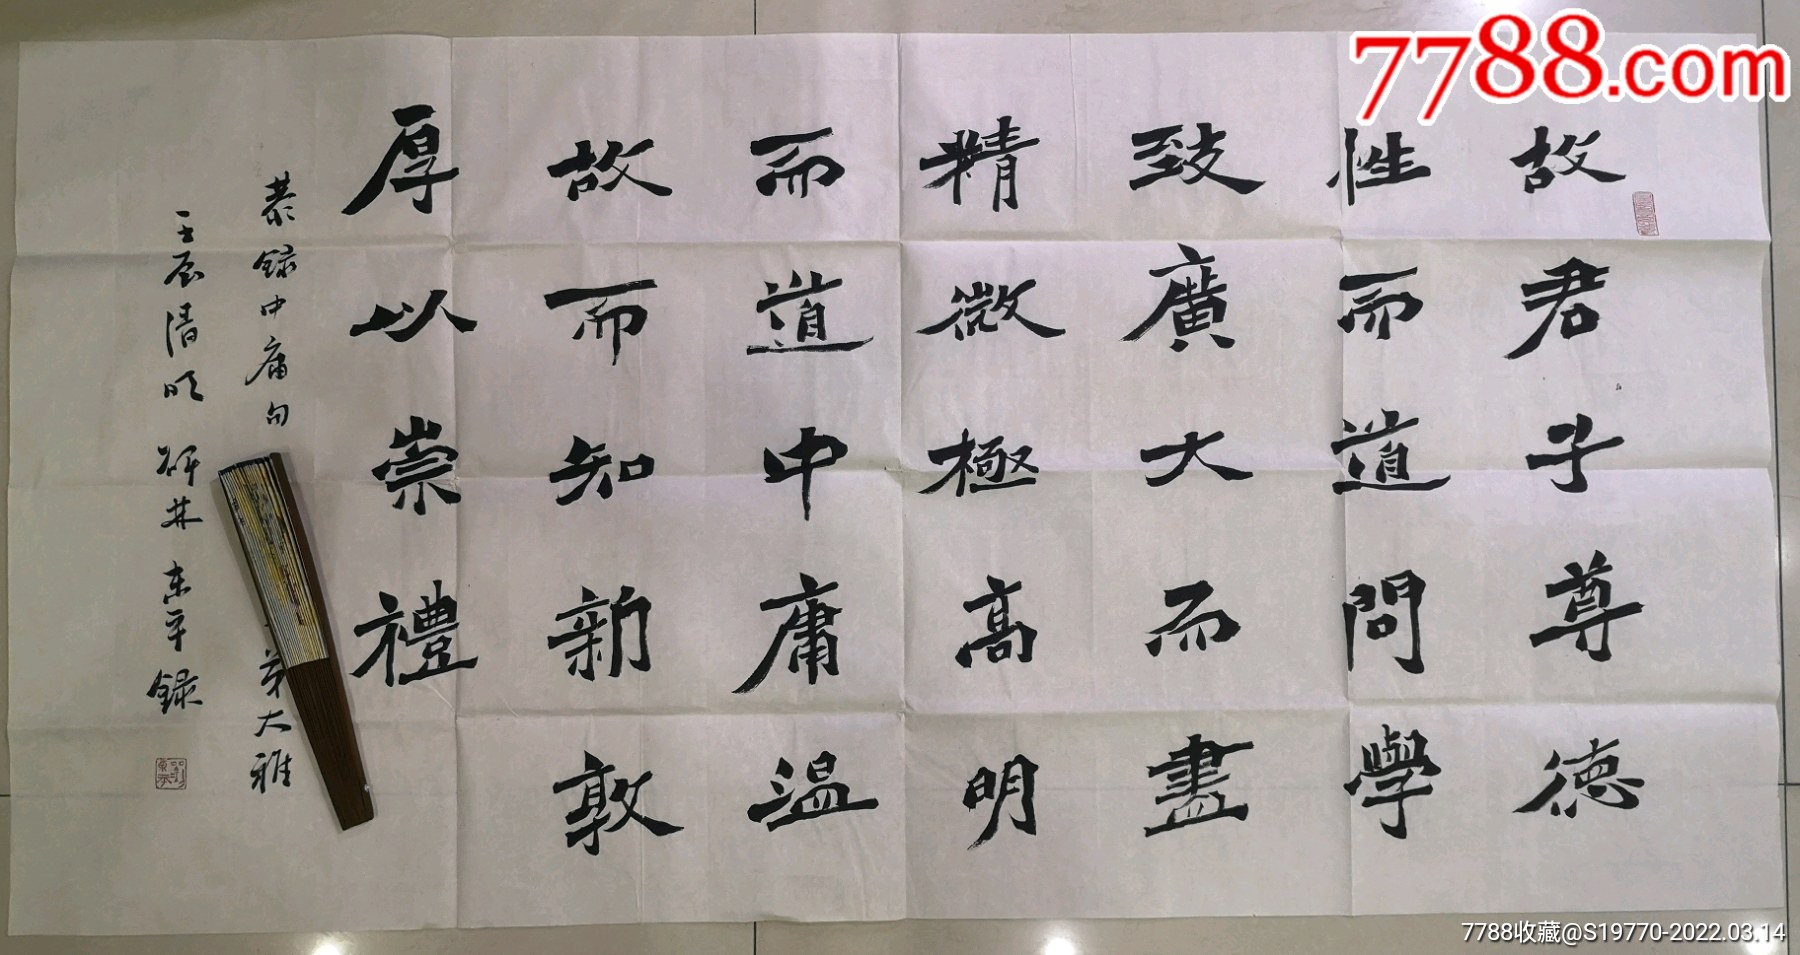 故君子尊德
性而道問學
致廣大而盡
精微極高明
而道中庸温
故而知新敦
厚以崇禮
恭録中庸句
弟大雅
壬辰清明 研林 東平録
7788.com
7788收藏@S19770-2022.03.14